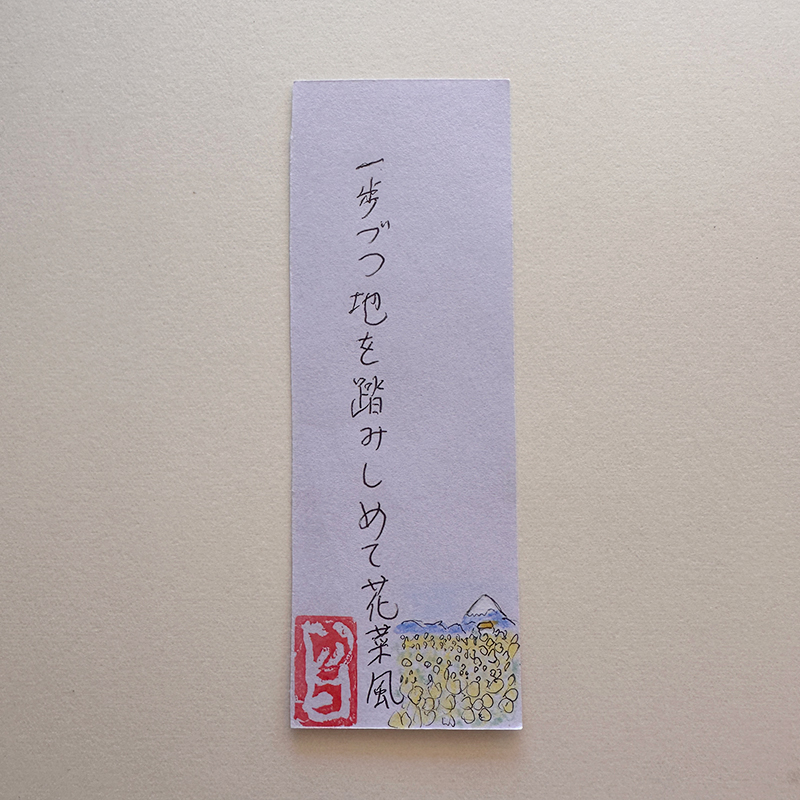 一歩づつ地を踏みしめて花菜風